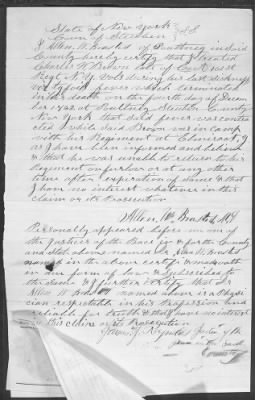 State of New York
County of Steuben } SS
I Allen W. Brasted of Pulteney in said
County hereby certify that I treated
Charles H. Brown of Co.
Regt N.Y. Vols during his last sickness
of typhoid fever which terminated
in his death on the fourth day of Decem
ber 1862 at Pulteney Steuben County
New York that said fever was contra
cted while said Brown was in camp
with his Regiment at Elmira N.Y
as I have been informed and believe
& that he was unable to return to his
Regiment on furlow or at any other
time after expiration of same & that
I have no interest whatever in this
claim or its Prosecution
Allen W. Brasted MD
Personally appeared before me one of
the Justices of the Peace in & for the County
and State above named
named in the above certificate
in due form of law & Subscribes to
the same & I further certify that Dr
Allen W Brasted named above is a Physi
cian respectable in his Profession and
reliable for truth & that I have no interest
in this claim or its Prosecution
Justice of the
Peace in the said
County